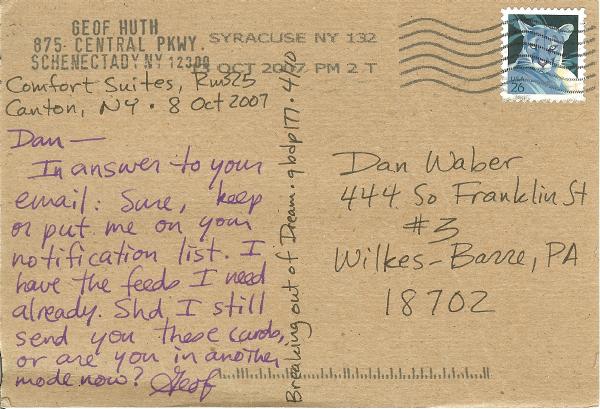 GEOF HUTH
875 CENTRAL PKWY.
SCHENECTADY NY 12309
SYRACUSE NY 132
OCT 2007 PM 2 T
USA
26
Comfort Suites, Rm325
Canton, NY · 8 Oct 2007
Dan—
In answer to your
email: Sure, keep
or put me on your
notification list. I
have the feeds I need
already. Shd I still
send you these cards,
or are you in another
mode now? Geof
Breaking out of Dream · qbdp177 · 4/10
Dan Waber
444 So Franklin St
#3
Wilkes-Barre, PA
18702